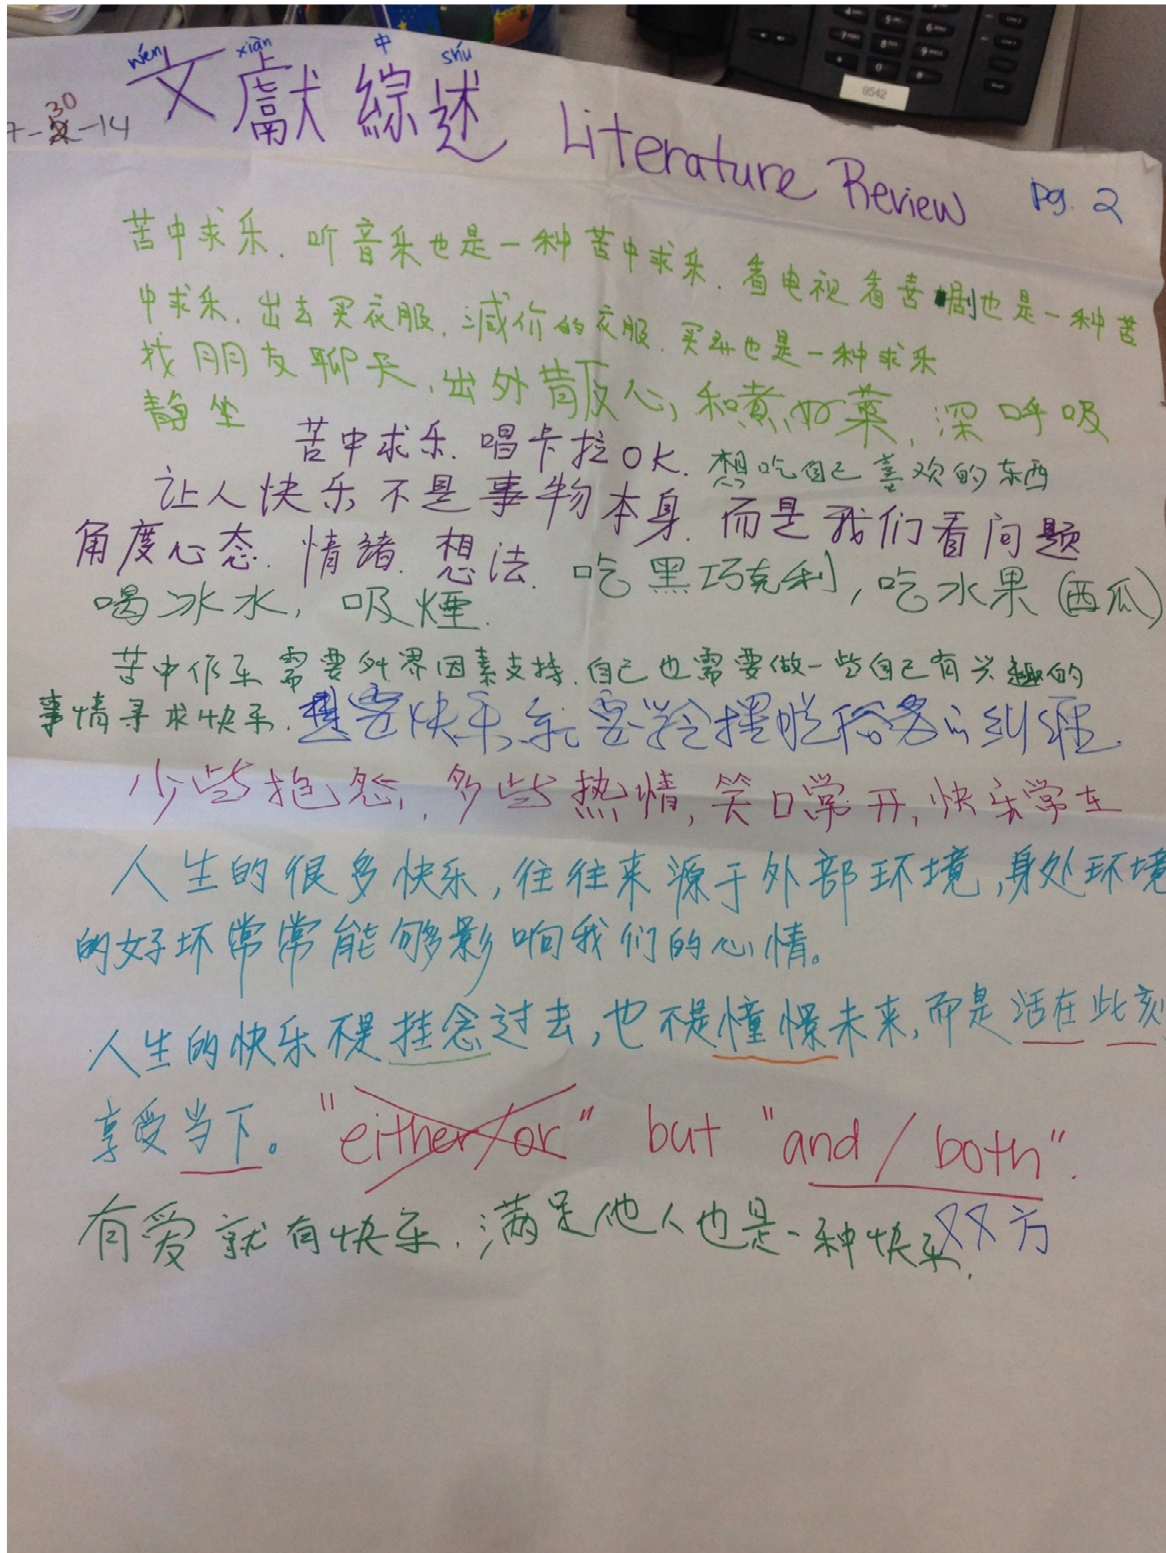 wén xiàn 中 shíu
7-30-14 文獻綜述 Literature Review pg. 2
苦中求乐. 听音乐也是一种苦中求乐. 看电视看喜剧也是一种苦
中求乐. 出去买衣服. 减价的衣服. 买到也是一种求乐
找朋友聊天, 出外散心, 和煮好菜, 深呼吸
静坐
苦中求乐. 唱卡拉OK. 想吃自己喜欢的东西
让人快乐不是事物本身. 而是我们看问题
角度心态. 情绪. 想法. 吃黑巧克利, 吃水果(西瓜)
喝冰水, 吸煙.
苦中作乐需要外界因素支持. 自己也需要做一些自己有兴趣的
事情寻求快乐. 想要快乐, 就要学会摆脱俗务的纠缠.
少些抱怨, 多些热情, 笑口常开, 快乐常在
人生的很多快乐, 往往来源于外部环境, 身处环境
的好坏常常能够影响我们的心情。
人生的快乐不是挂念过去, 也不是憧憬未来, 而是活在此刻
享受当下。 "either/or" but "and / both".
有爱就有快乐. 满足他人也是一种快乐. 双方
9542